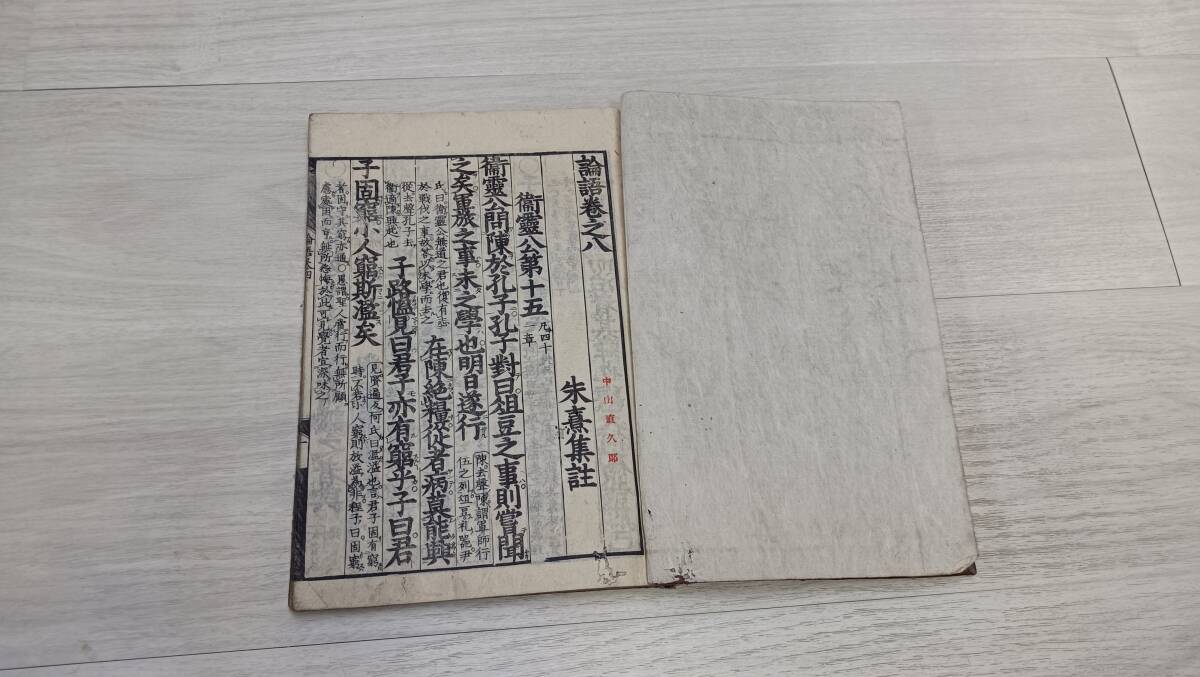 論語卷之八
朱熹集註
衞靈公第十五 凡四十一章
衞靈公問陳於孔子孔子對曰俎豆之事則嘗聞
之矣軍旅之事未之學也明日遂行 陳去聲陳謂軍師行伍之列俎豆禮器尹
氏曰衞靈公無道之君也復有志於戰伐之事故答以未學而去之 在陳絶糧從者病莫能興
從去聲孔子去衞適陳興起也 子路慍見曰君子亦有窮乎子曰君
子固窮小人窮斯濫矣 見賢遍反何氏曰濫溢也言君子固有窮時不若小人窮則放溢爲非程子曰固窮
者固守其窮亦通○愚謂聖人當行而行無所顧慮處困而亨無所怨悔於此可見學者宜深味之
中出直久郎